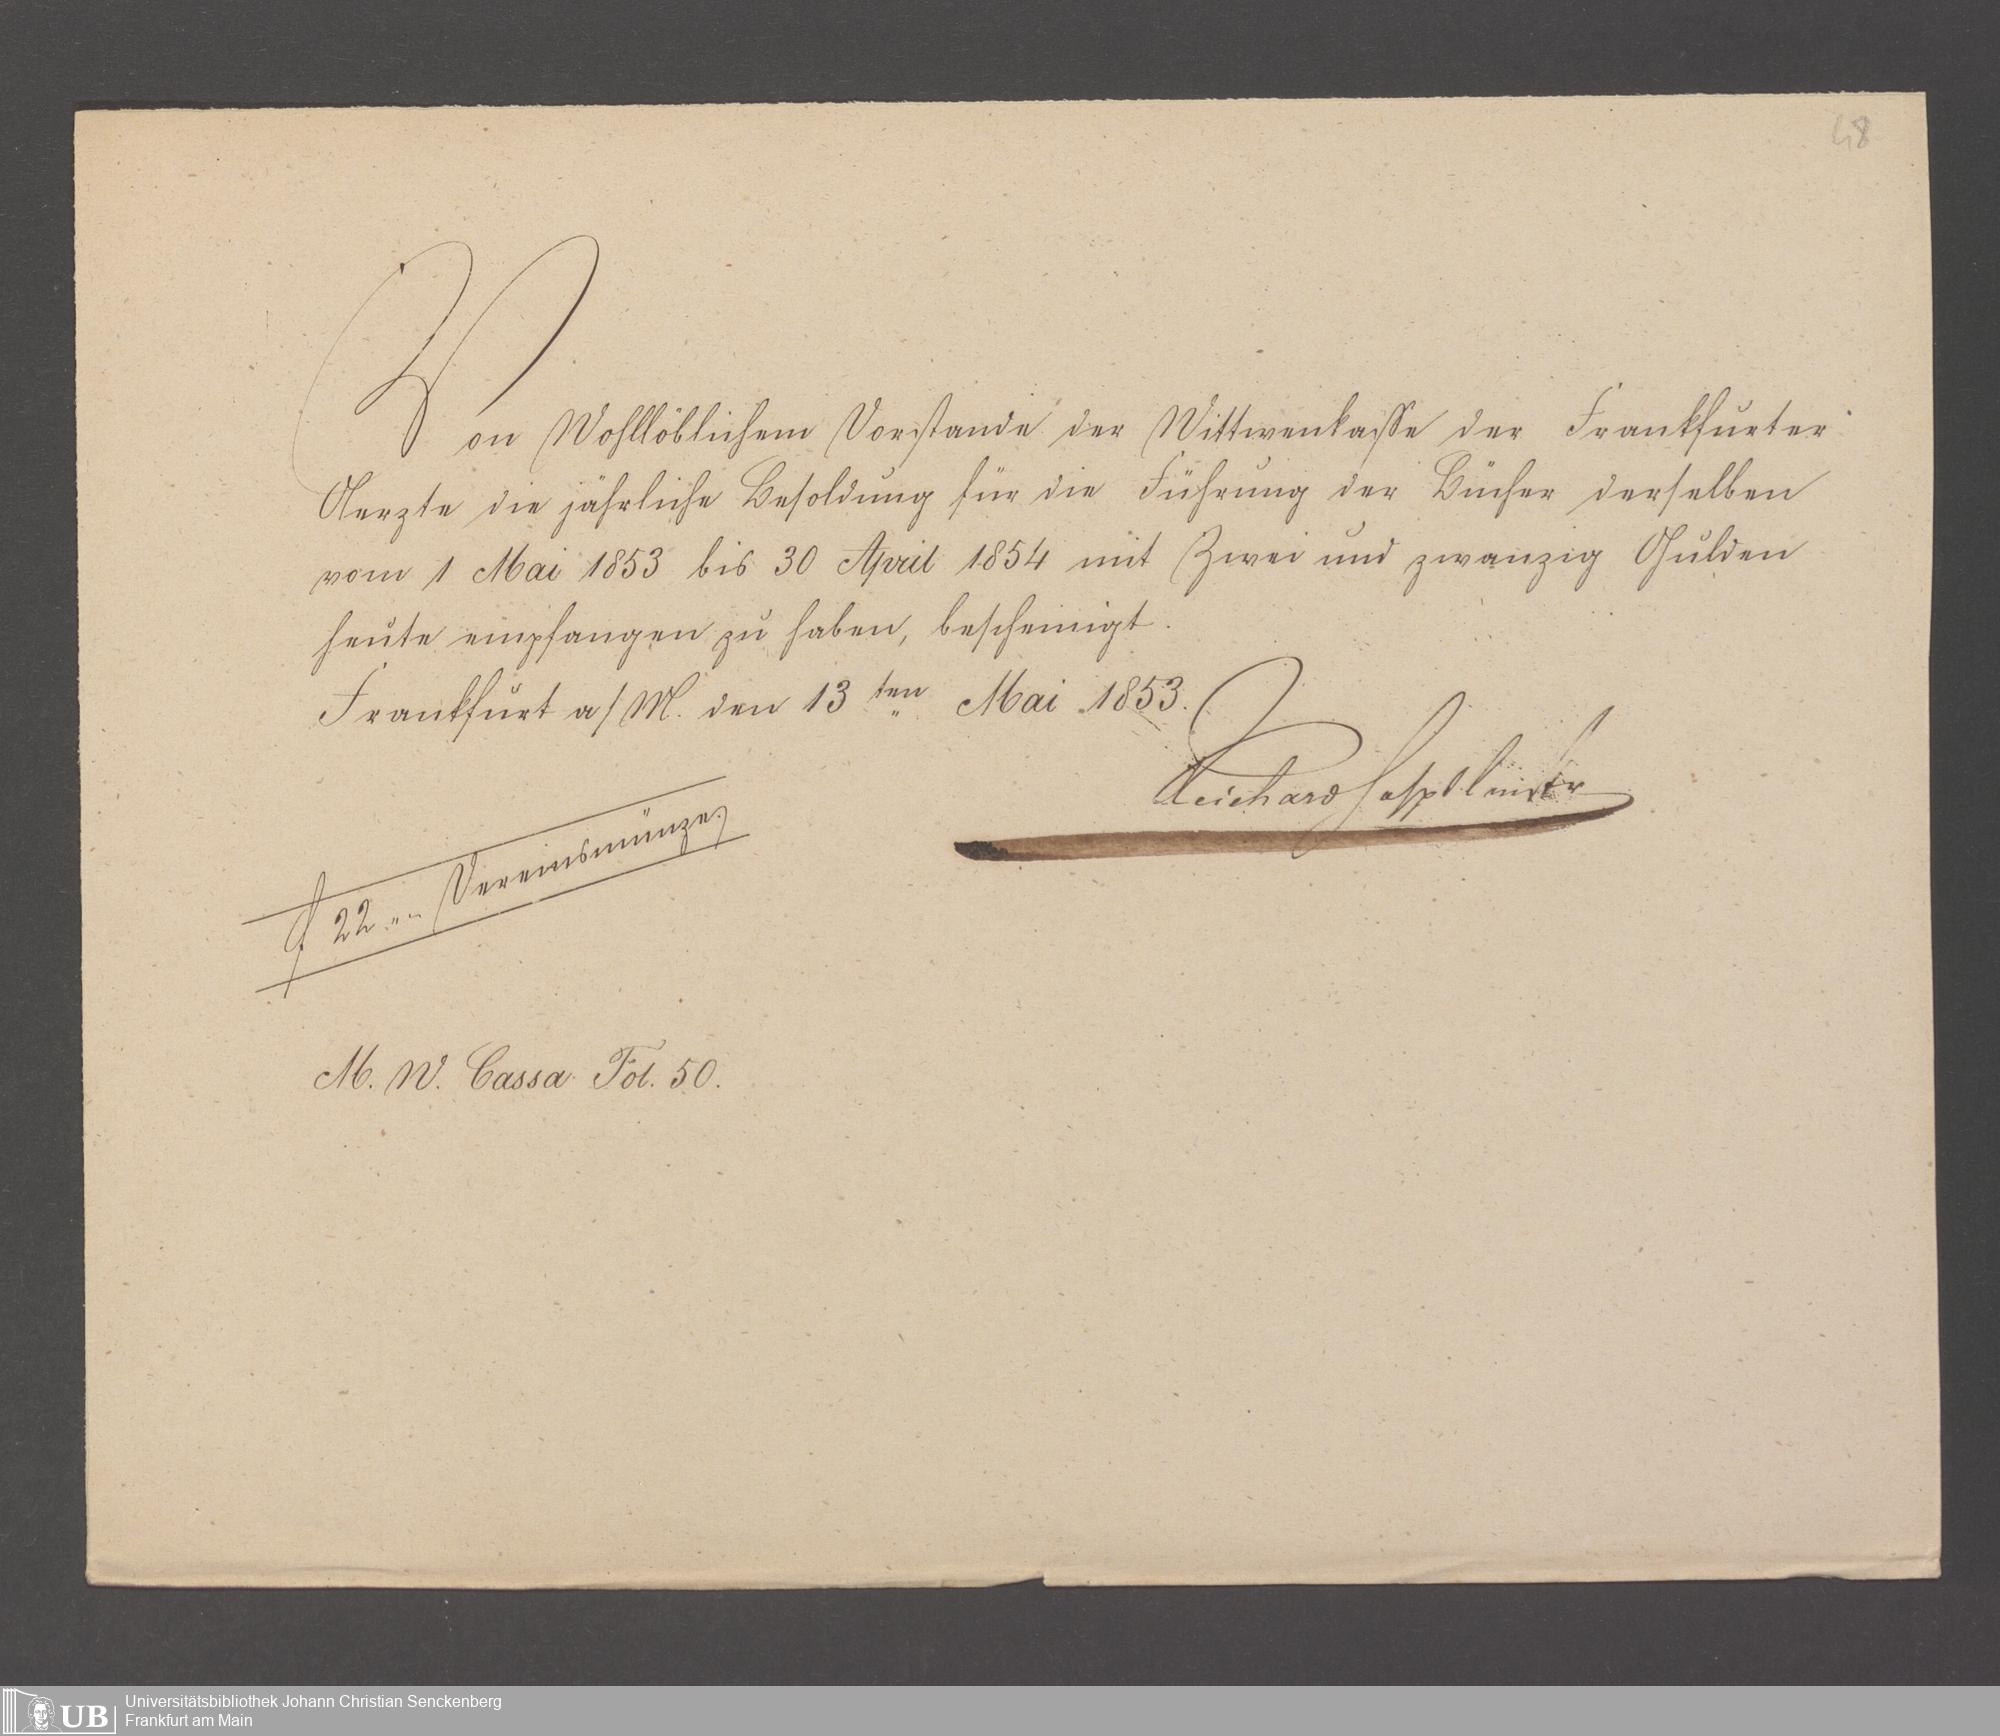 48
Von Wohllöblichem Vorstande der Wittwenkasse der Frankfurter
Aerzte die jährliche Besoldung für die Führung der Bücher derselben
vom 1 Mai 1853 bis 30 April 1854 mit Zwei und zwanzig Gulden
heute empfangen zu haben, bescheinigt.
Frankfurt a/M. den 13ten Mai 1853.
Reichard
f 22 „ – Vereinsmünze.
M. W. Cassa Fol. 50.
UB
Universitätsbibliothek Johann Christian Senckenberg
Frankfurt am Main